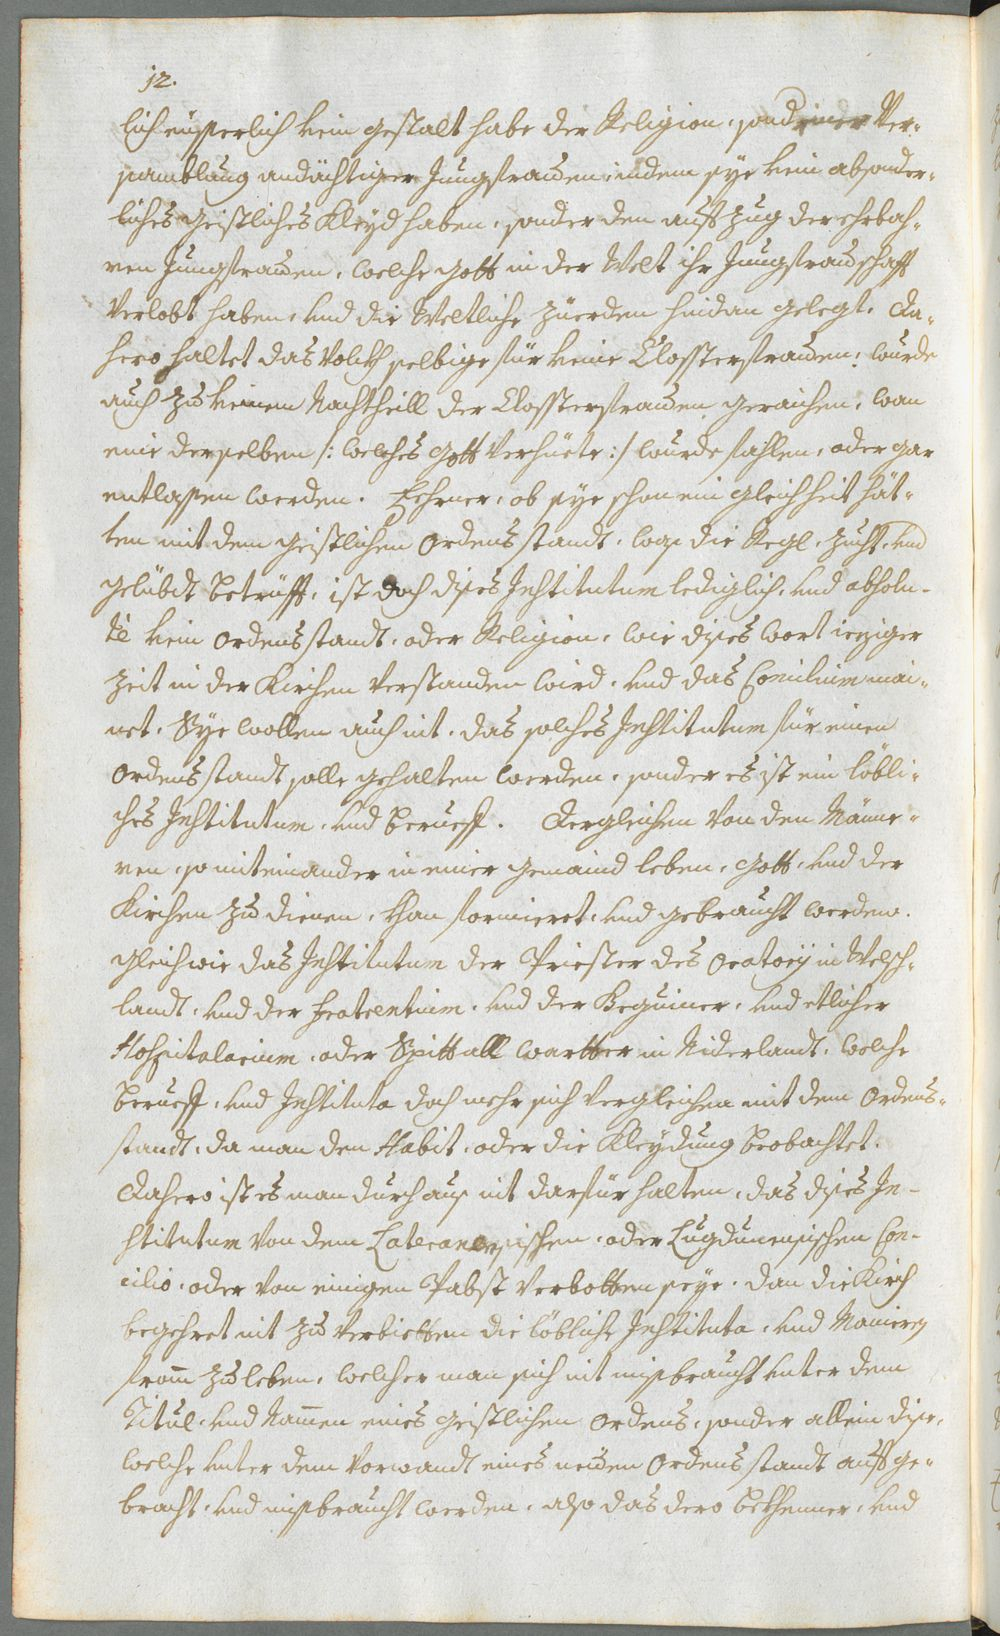 12.
lich eüsserlich kein gestalt habe der Religion, sond einer Ver-
samblung andächtiger Jungfrauen, indem sye kein absonder-
liches geistliches Kleyd haben, sonder den aufzug der ehrbah-
ren Jungfrauen, welche Gott in der Welt ihr Jungfrauschafft
verlobt haben, und die Weltliche Zierden hindan gelegt. Da-
hero haltet das Volckh selbige für keine Closterfrauen: wurde
auch zu keinem Nachtheill der Closterfrauen geraichen, wan
eine derselben /: welches Gott verhüete :/ wurde fahlen, oder gar
entlassen werden. Fehrner, ob sye schon ein gleichheit hät-
ten mit dem geistlichen Ordensstandt, was die Regl, Zucht, und
gelübdt betrifft, ist doch dises Institutum lediglich, und absolu-
tè kein Ordensstandt, oder Religion, wie dises wort ieziger
Zeit in der Kirchen verstanden wird, und das Concilium mai-
net. Sye wollen auch nit, das solches Institutum für einen
Ordensstandt solle gehalten werden, sonder es ist ein löbli-
ches Institutum, und berueff. Dergleichen von den Männe-
ren, so miteinander in einer gemaind leben, Gott, und der
Kirchen zu dienen, khan formieret, und gebraucht werden.
gleichwie das Institutum der Priester des Oratorij in Welsch-
landt, und der fratrentium, und der Beguiner, und etlicher
Hospitalarium, oder Spittall wartter in Niderlandt, welche
berueff, und Instituta doch mehr sich vergleichen mit dem Ordens-
standt, da man den Habit, oder die Kleydung beobachtet.
Dahero ist es man durchaus nit darfür halten, das dises In-
stitutum von dem Lateranensischen, oder Lugdunensischen Con-
cilio, oder von einigen Pabst verbotten seye. dan die Kirch
begehret nit zu verbietten die löbliche Instituta, und Manieren
from̄ zu leben, welcher man sich nit misbraucht unter dem
Titul, und Nam̄en eines geistlichen Ordens, sonder allein dise,
welche unter dem Vorwandt eines neuen Ordensstandt auffge-
bracht, und misbraucht werden, also das dero bekhenner, und